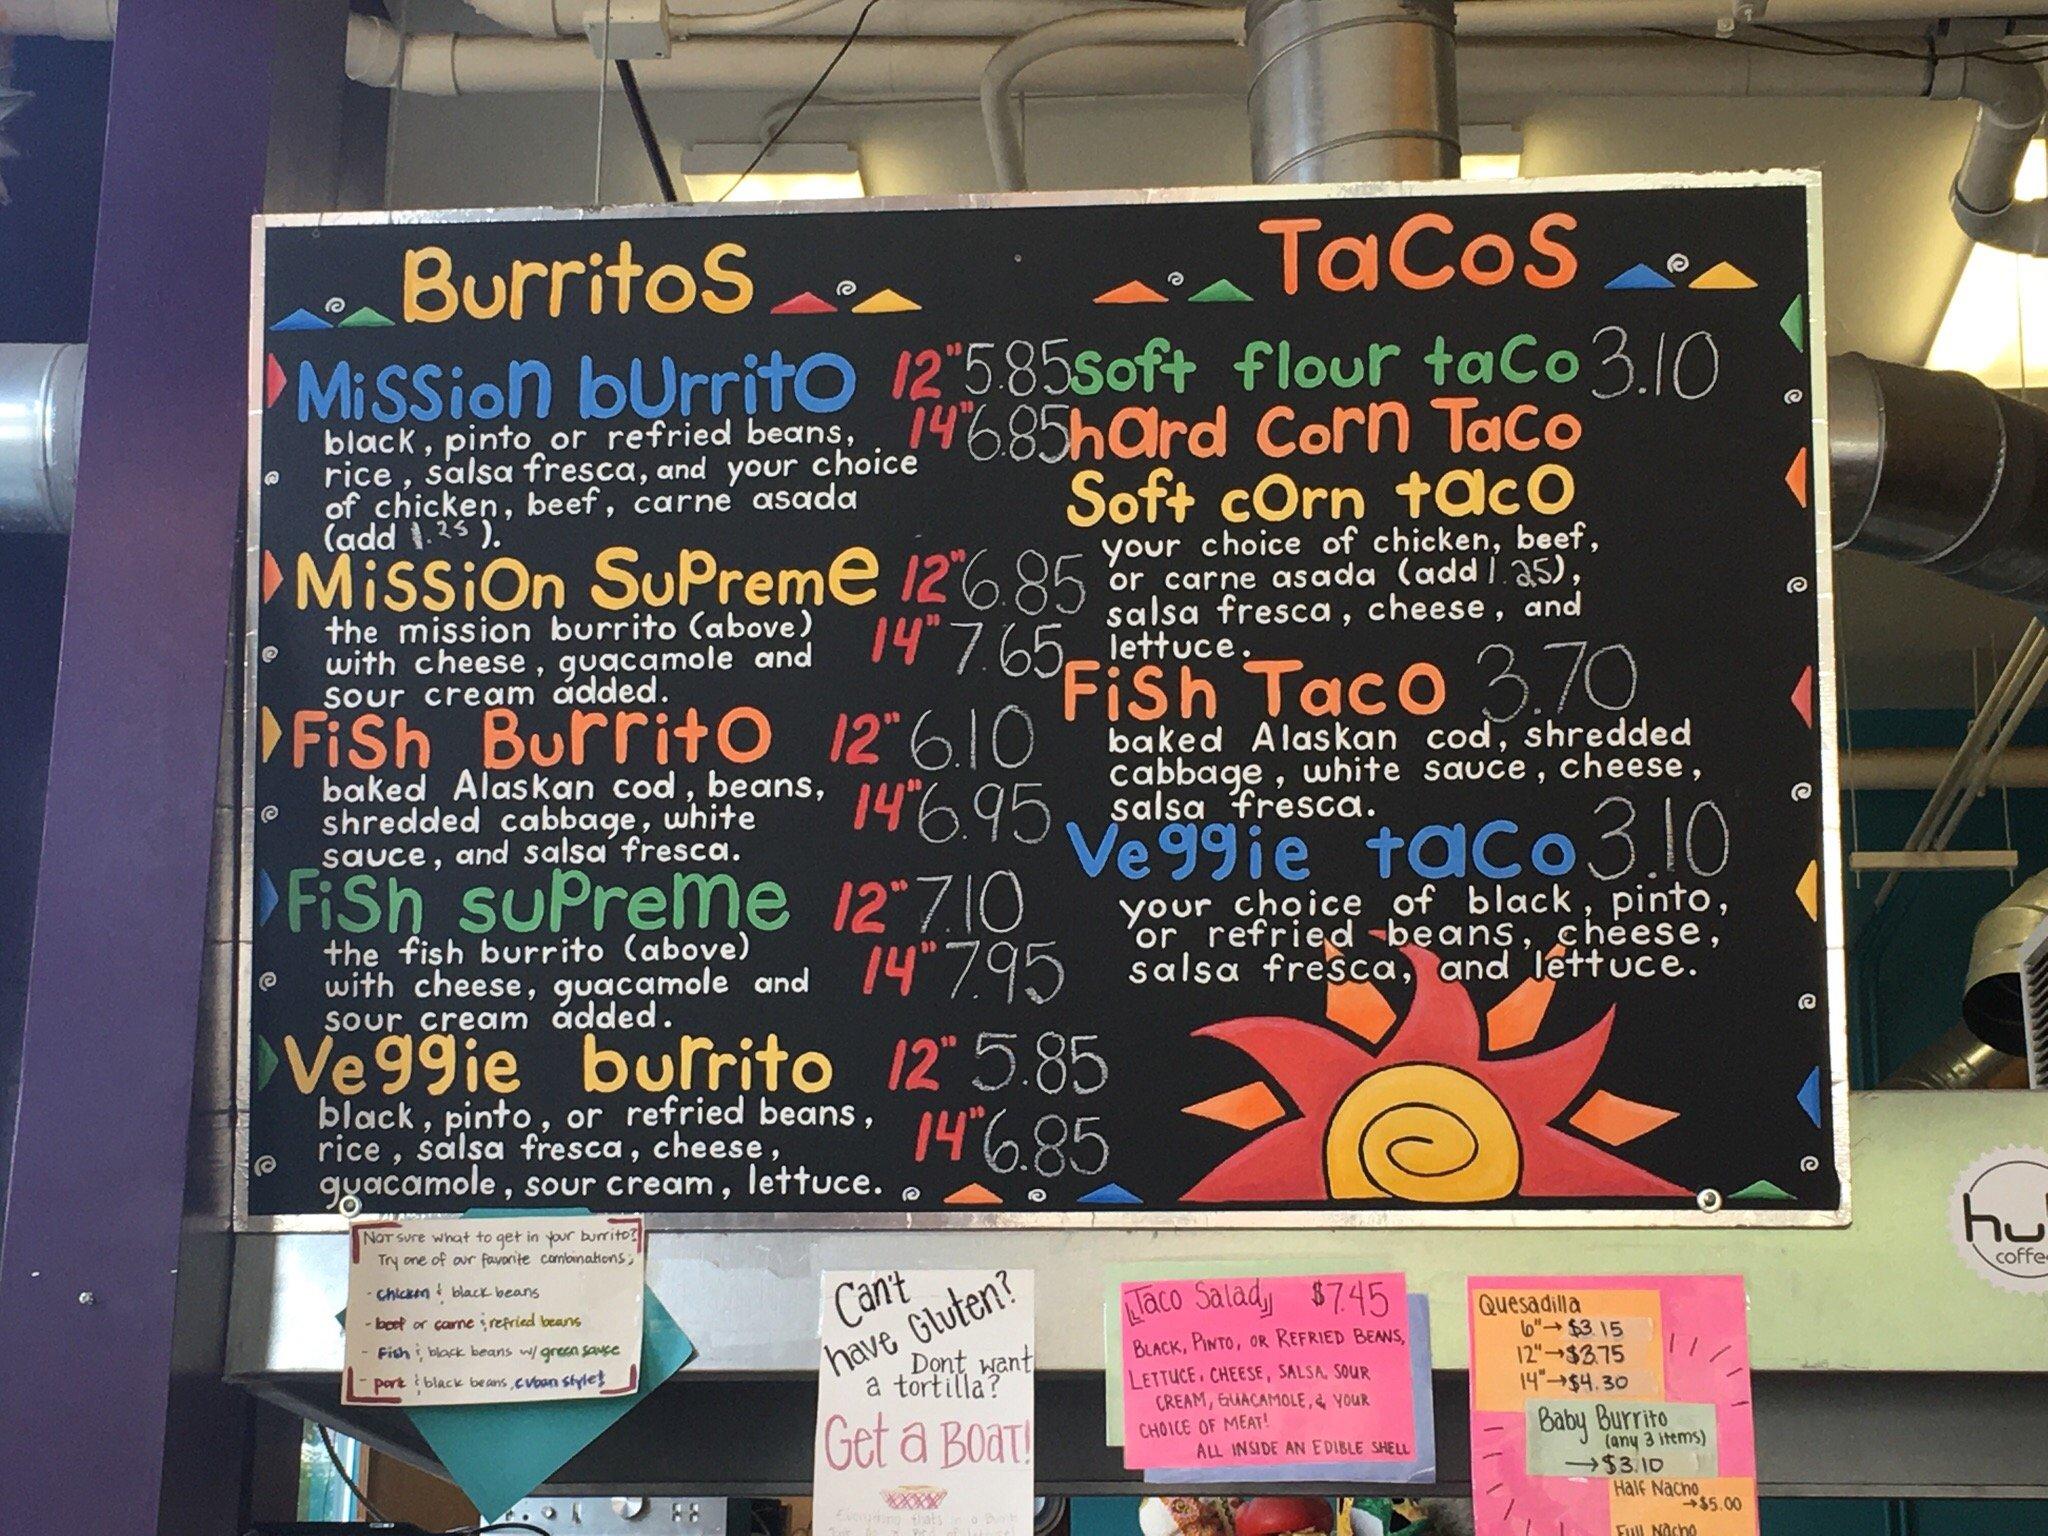 Burritos
Mission burrito 12" 5.85
14" 6.85
black, pinto or refried beans,
rice, salsa fresca, and your choice
of chicken, beef, carne asada
(add 1.25).
Mission Supreme 12" 6.85
14" 7.65
the mission burrito (above)
with cheese, guacamole and
sour cream added.
Fish Burrito 12" 6.10
14" 6.95
baked Alaskan cod, beans,
shredded cabbage, white
sauce, and salsa fresca.
Fish supreme 12" 7.10
14" 7.95
the fish burrito (above)
with cheese, guacamole and
sour cream added.
Veggie burrito 12" 5.85
14" 6.85
black, pinto, or refried beans,
rice, salsa fresca, cheese,
guacamole, sour cream, lettuce.
Tacos
Soft flour taco 3.10
hard corn Taco
Soft corn taco
your choice of chicken, beef,
or carne asada (add 1.25),
salsa fresca, cheese, and
lettuce.
Fish Taco 3.70
baked Alaskan cod, shredded
cabbage, white sauce, cheese,
salsa fresca.
Veggie taco 3.10
your choice of black, pinto,
or refried beans, cheese,
salsa fresca, and lettuce.
Not sure what to get in your burrito?
Try one of our favorite combinations;
- chicken & black beans
- beef or carne & refried beans
- Fish & black beans w/ green sauce
- pork & black beans, cuban style!
Can't
have Gluten?
Dont want
a tortilla?
Get a BOAT!
Taco Salad $7.45
BLACK, PINTO, OR REFRIED BEANS,
LETTUCE, CHEESE, SALSA, SOUR
CREAM, GUACAMOLE, & YOUR
CHOICE OF MEAT!
ALL INSIDE AN EDIBLE SHELL
Quesadilla
6" → $3.15
12" → $3.75
14" → $4.30
Baby Burrito
(any 3 items)
→ $3.10
Half Nacho
→ $5.00
Full Nacho
hu
coffe